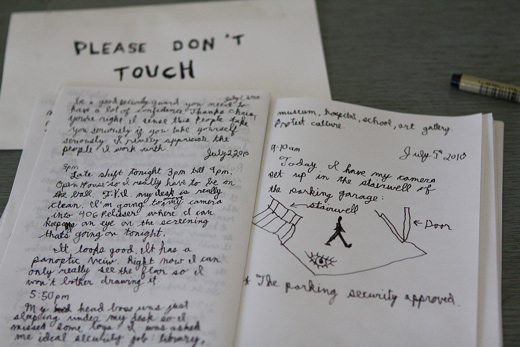 PLEASE DON'T
TOUCH
be a good security guard you need to
have a lot of confidence. Thanks
You're right I sense this people take
you seriously if you take yourself
seriously. I really appreciate the
people I work with.
July 2 2010
4pm
Late shift tonight 3pm till 9pm.
Open House so I really have to be on
the ball. T'Kil my desk is really
clean. I'm going to my camera
into 406 where I can
keep an eye on the screening
thats going on tonight.
It looks good. It has a
panoptic view. Right now I can
only really see the floor so I
won't bother drawing it
5:50 pm
My head boss was just
slaping under my desk so it
missed some I was asked
me ideal security job: library,
museum, hospital, school, art gallery.
Protect culture.
9:10am
July 5th 2010
Today I have my camera
set up in the stairwell of
the parking garage:
stairwell
Door
* The parking security approved.